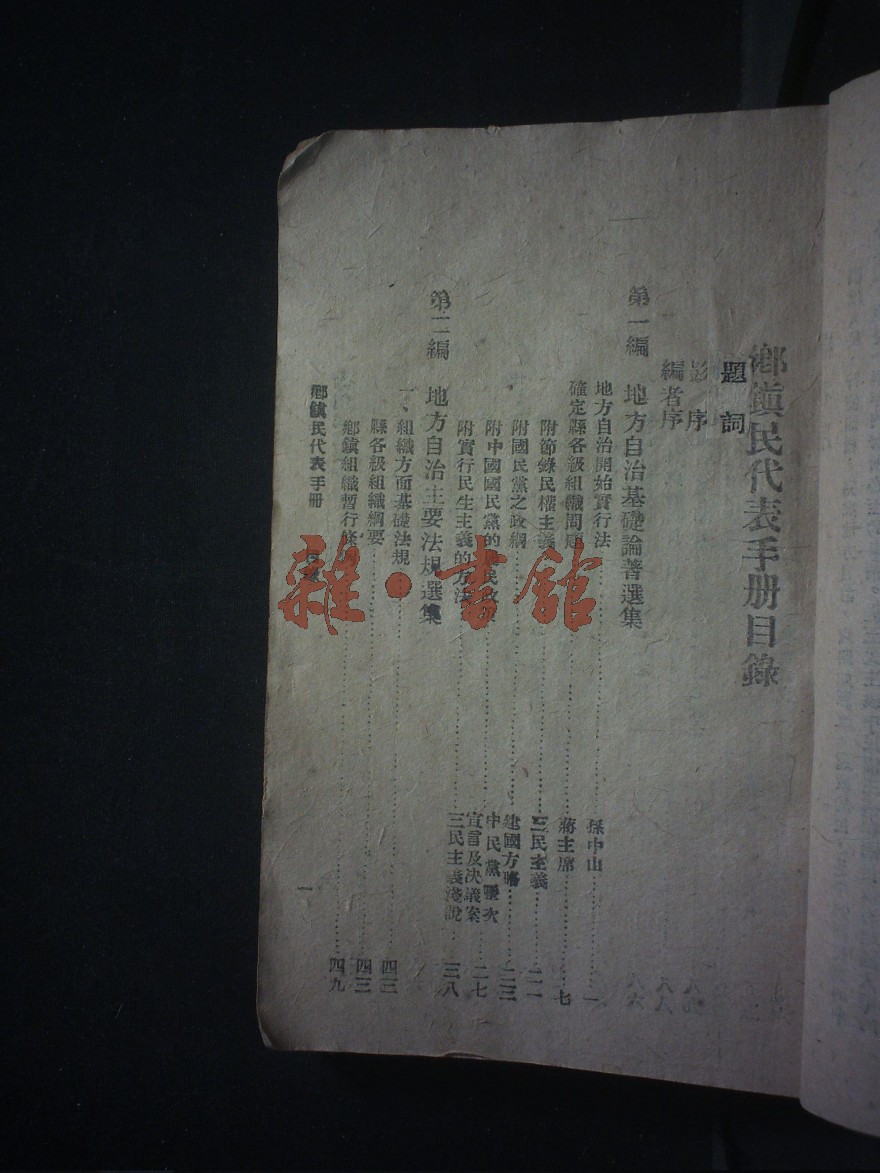 鄉鎭民代表手册目錄
題詞
彭序
編者序
第一編 地方自治基礎論著選集
地方自治開始實行法 孫中山 一
確定縣各級組織問題 蔣主席 七
附節錄民權主義 三民主義 二一
附國民黨之政綱 建國方略 二三
附中國國民黨的 民政 中民黨歷次宣言及决議案 二七
附實行民生主義的方法 三民主義淺說 三八
第二編 地方自治主要法規選集
一、組織方面基礎法規 四三
縣各級組織綱要 四三
鄉鎭組織暫行條 四九
鄉鎭民代表手册
一
雜·書館